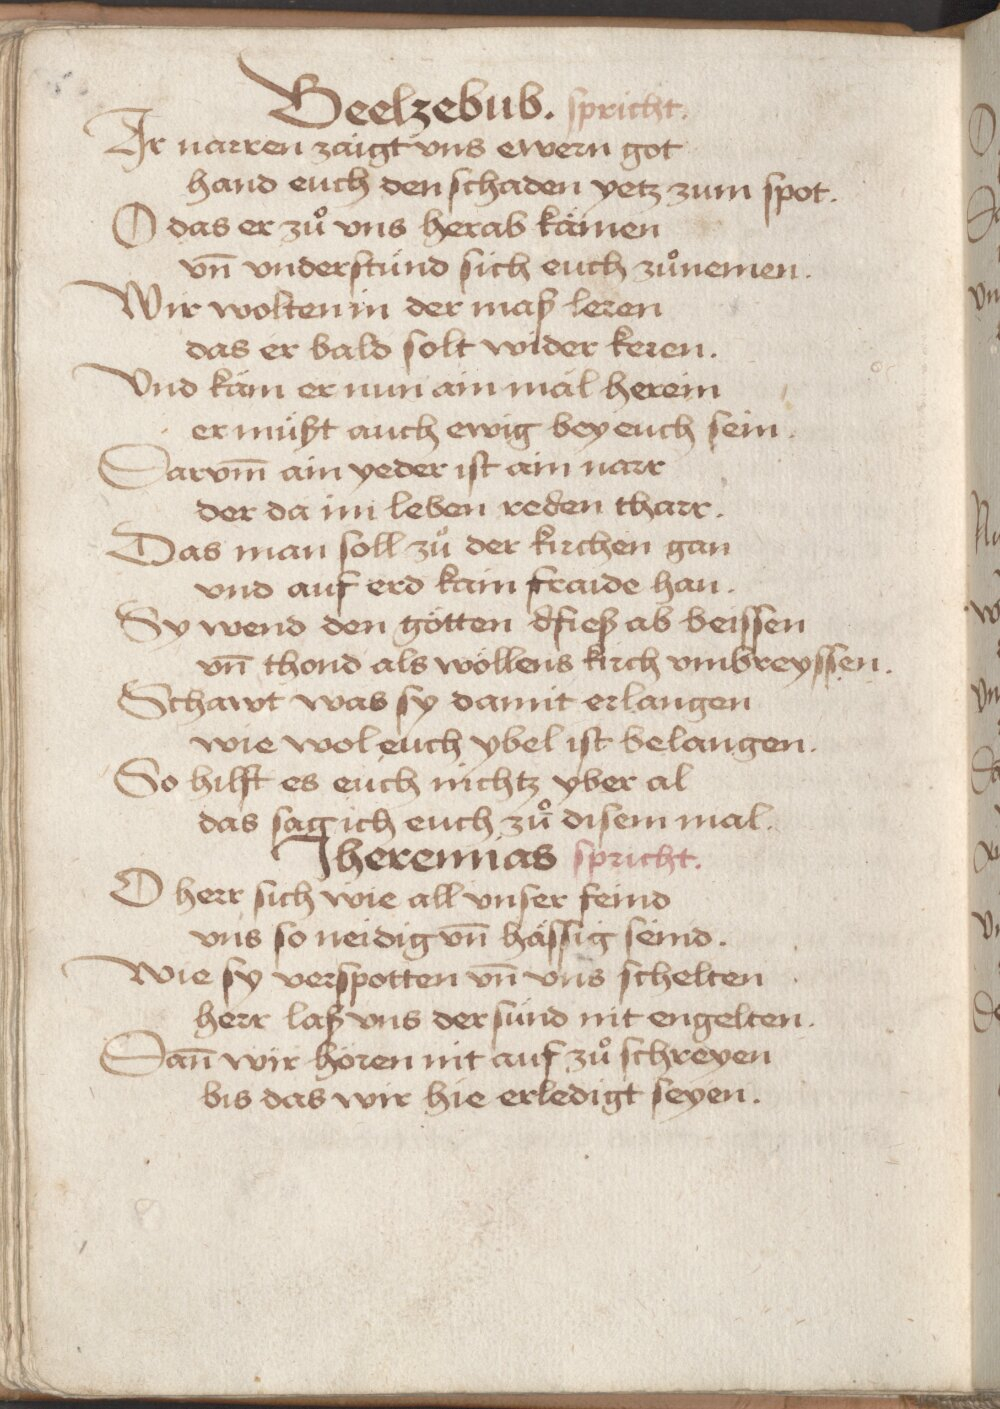 Beelzebub. spricht.
Ir narren zaigt vns ewern got
hand euch den schaden yetz zum spot.
O das er zů vns herab kämen
vn̄ vnderstünd sich euch zůnemen.
Wir wolten in der maß leren
das er bald solt wider keren.
Vnd käm er nun ain mäl herein
er müßt auch ewig bey euch sein.
Darvm̄ ain yeder ist ain narr
der da im leben reden tharr.
Das man soll zů der kirchen gan
vnd auf erd kain fraide han.
Sy wend den götten dfieß ab beissen
vn̄ thond als wöllens kirch vmbreyssen.
Schawt was sy damit erlangen
wie wol euch ybel ist belangen.
So hilft es euch nichtz yber al
das sag ich euch zů disem mal.
Jheremias spricht.
O herr sich wie all vnser feind
vns so neidig vn̄ hässig seind.
Wie sy verspotten vn̄ vns schelten
herr laß vns der sünd nit engelten.
Dan̄ wir hören nit auf zů schreyen
bis das wir hie erledigt seyen.